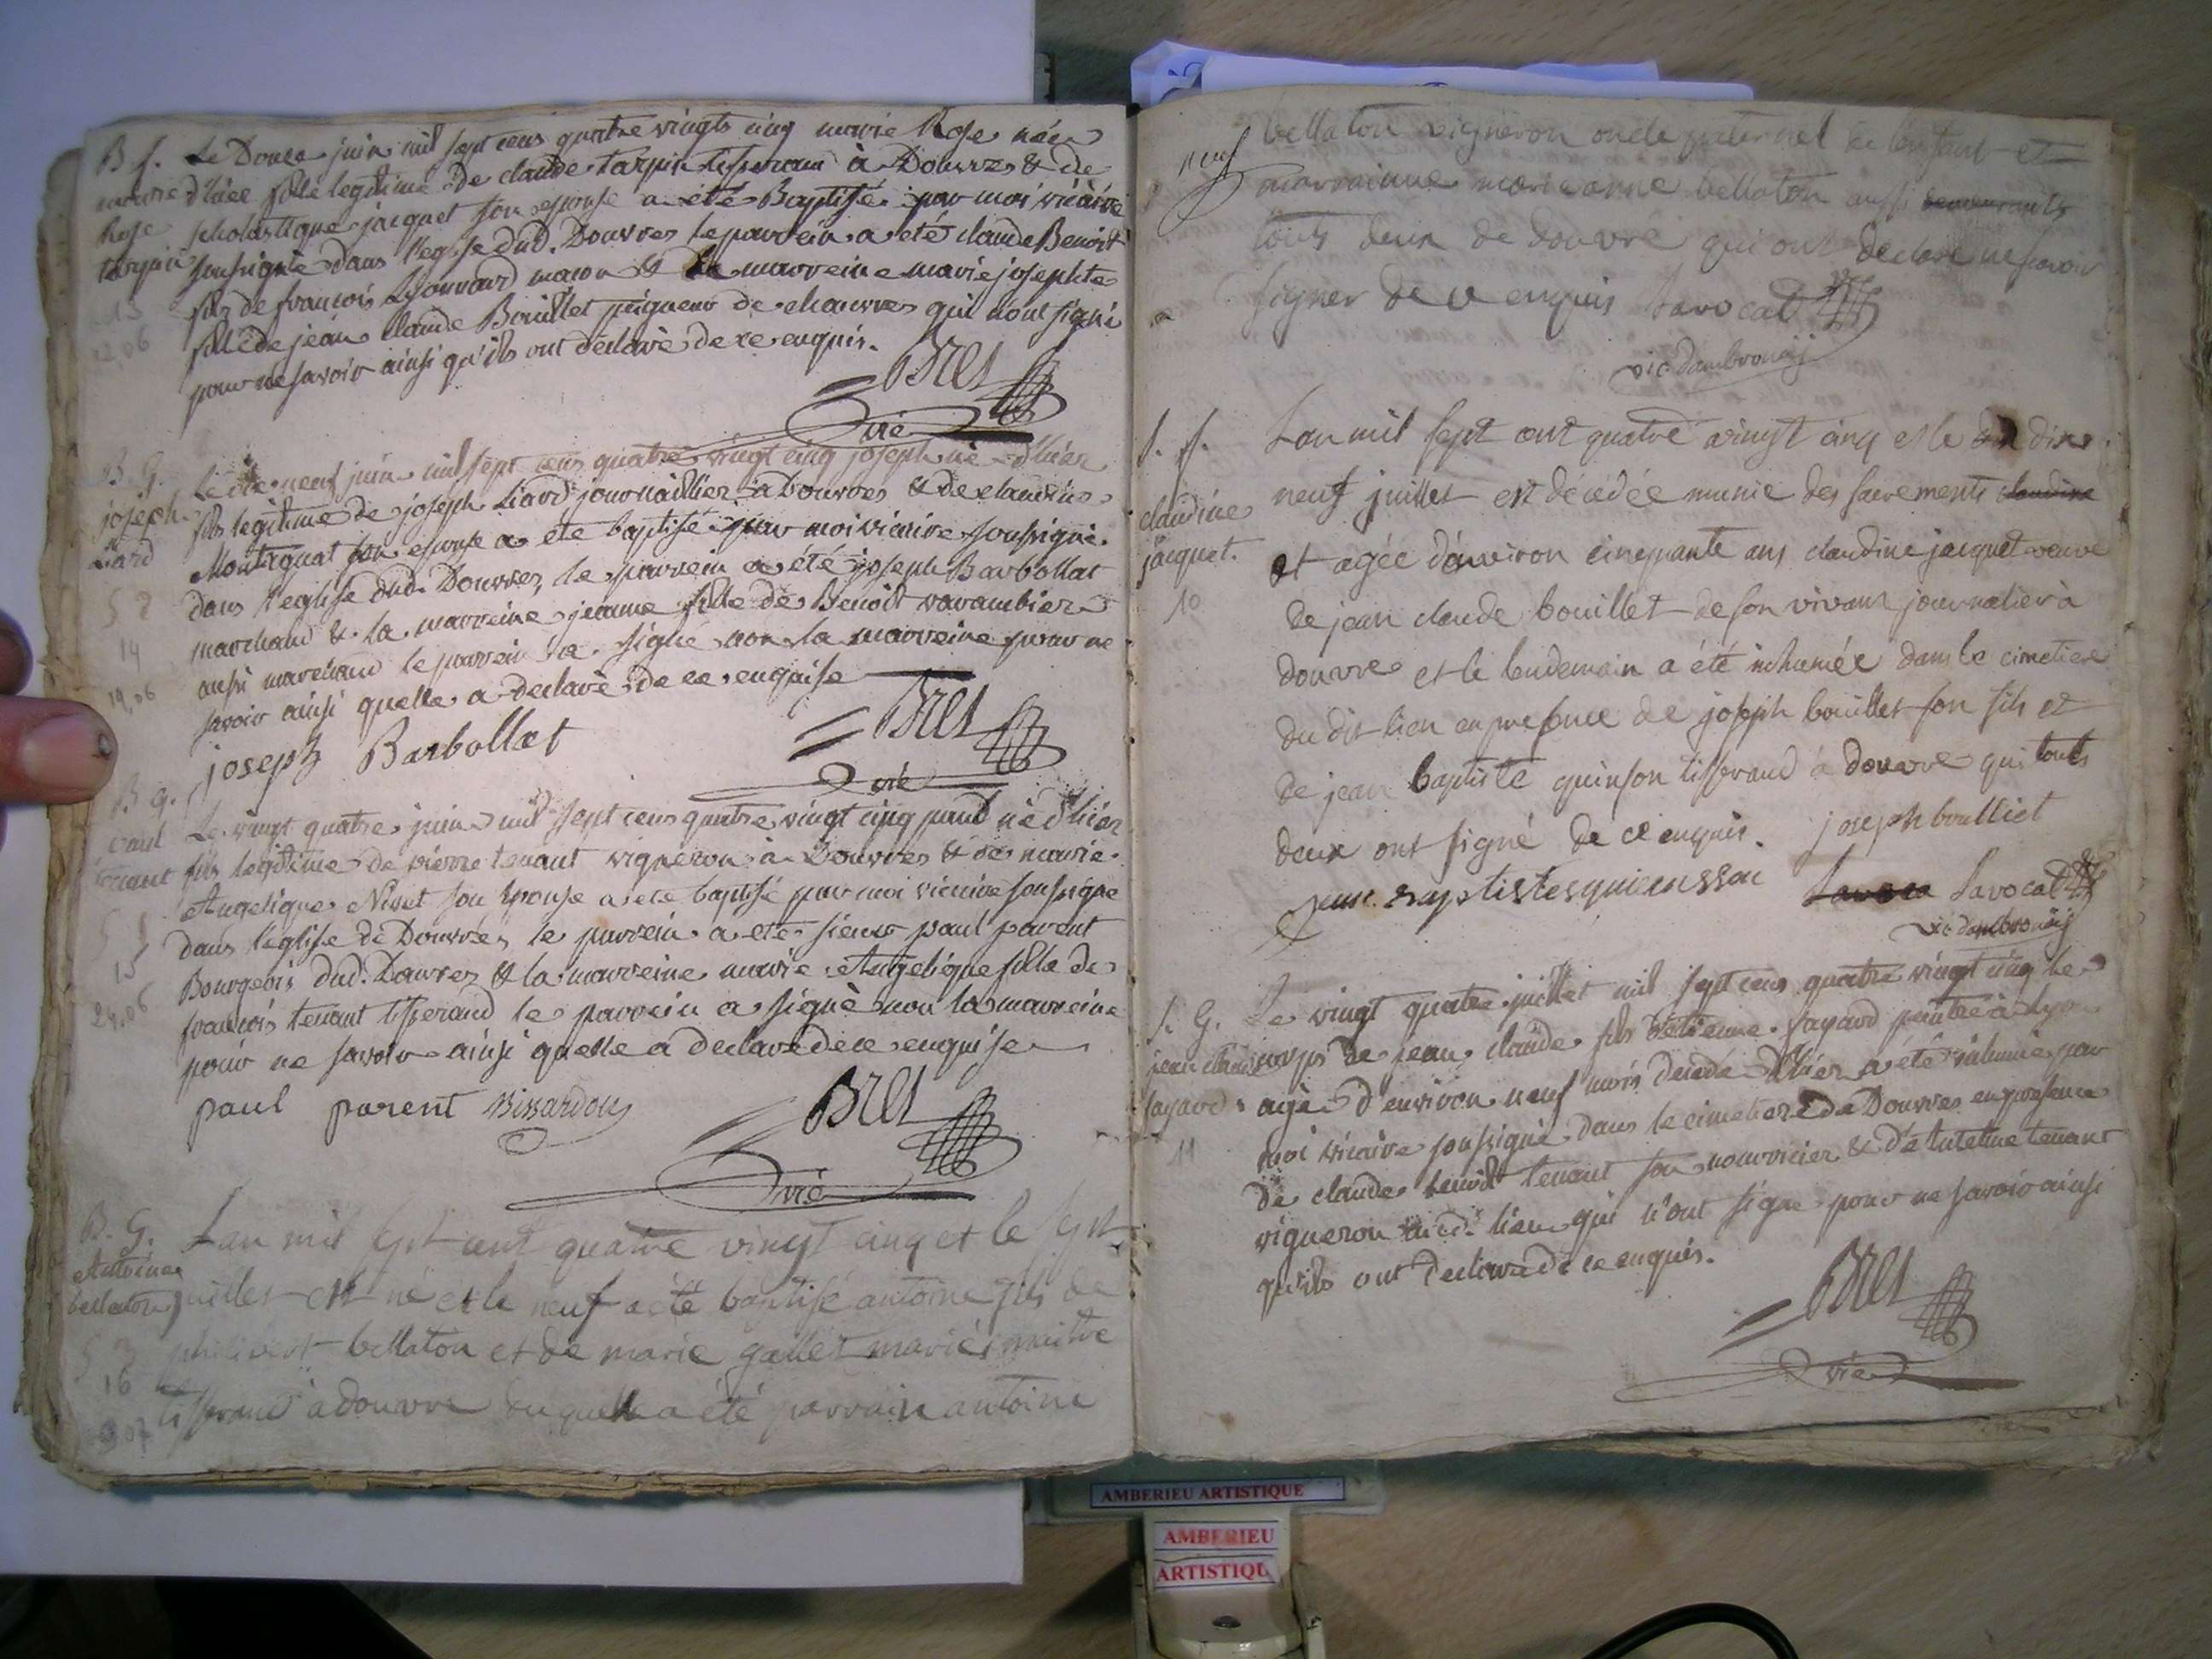 B f. Le Douze juin mil sept cens quatre vingts cinq marie Rose née
marie d'hier fille legitime de claude tarpin tisserand à Douvres & de
Rose scholastique jacquet son epouse a été Baptisée par moi vicaire
tarpin soussigné dans l'eglise dud. Douvres le parrein a été claude Benoit
13 fils de francois Lyonnard macon & la marreine marie josephte
12,06 fille de jean claude Bouillet peigneur de chanvres qui n'ont signé
pour ne savoir ainsi qu'ils ont déclaré de ce enquis.
Bret
vic
B. G. Le dix neuf juin mil sept cens quatre vingt cinq joseph né d'hier
joseph fils legitime de joseph Liard journaillier à Douvres & de claudine
Liard Montagnat son epouse a été baptisé par moi vicaire soussigné
dans l'eglise dud. Douvres, le parrein a été joseph Barbollat
14 marchand & la marreine jeanne fille de Benoit varambier
19,06 aussi marchand le parrein a signé non la marreine pour ne
savoir ainsi quelle a declaré de ce enquise
joseph Barbollat Bret
vic
B g.
paul Le vingt quatre juin mil sept cens quatre vingt cinq paul né d'hier
tenant fils legitime de pierre tenant vigneron à Douvres & de marie
Angelique Nivet son epouse a été baptisé par moi vicaire soussigné
dans l'eglise de Douvres le parrein a été sieur paul parent
15 Bourgeois dud. Douvres & la marreine marie Angelique fille de
24,06 francois tenant tisserand le parrein a signé non la marreine
pour ne savoir ainsi quelle a declaré de ce enquise
paul parent Bissardon Bret
vic
B. G. L'an mil sept cent quatre vingt cinq et le sept
Antoine
bellaton juillet est né et le neuf a été baptisé antoine fils de
philibert bellaton et de marie gallet mariés maitre
16 tisserand à douvre duquel a été parrain antoine
9 07
neuf bellaton vigneron oncle paternel de l'enfant et
marrainne marie anne bellaton aussi demeurants
tous deux de douvre qui ont declaré ne savoir
signer de ce enquis Lavocat
vic dambronaÿ
S. f. L'an mil sept cent quatre vingt cinq et le dix
claudine neuf juillet est décédée munie des sacrements claudine
jacquet. et agée d'environ cinquante ans claudine jacquet veuve
10 de jean claude bouillet de son vivant journalier à
douvre et le lendemain a été inhumée dans le cimetiere
du dit lieu en presence de joseph bouillet son fils et
de jean baptiste quinson tisserand à douvre qui touts
deux ont signé de ce enquis. joseph boulliet
jean Baptistes quienssou Lavoca Lavocat
vic dambronaÿ
S. G. Le vingt quatre juillet mil sept cens quatre vingt cinq le
jean claude corps de jean claude fils d'etienne fayard peintre à Lyon
fayard agé d'environ neuf mois decedé d'hier a été inhumé par
11 moi vicaire soussigné dans le cimetiere de Douvres en presence
de claude benoit tenant son nourricier & d'Antelme tenant
vigneron aud. lieu qui n'ont signé pour ne savoir ainsi
qu'ils ont declaré de ce enquis.
Bret
vic
AMBERIEU ARTISTIQUE
AMBERIEU
ARTISTIQU